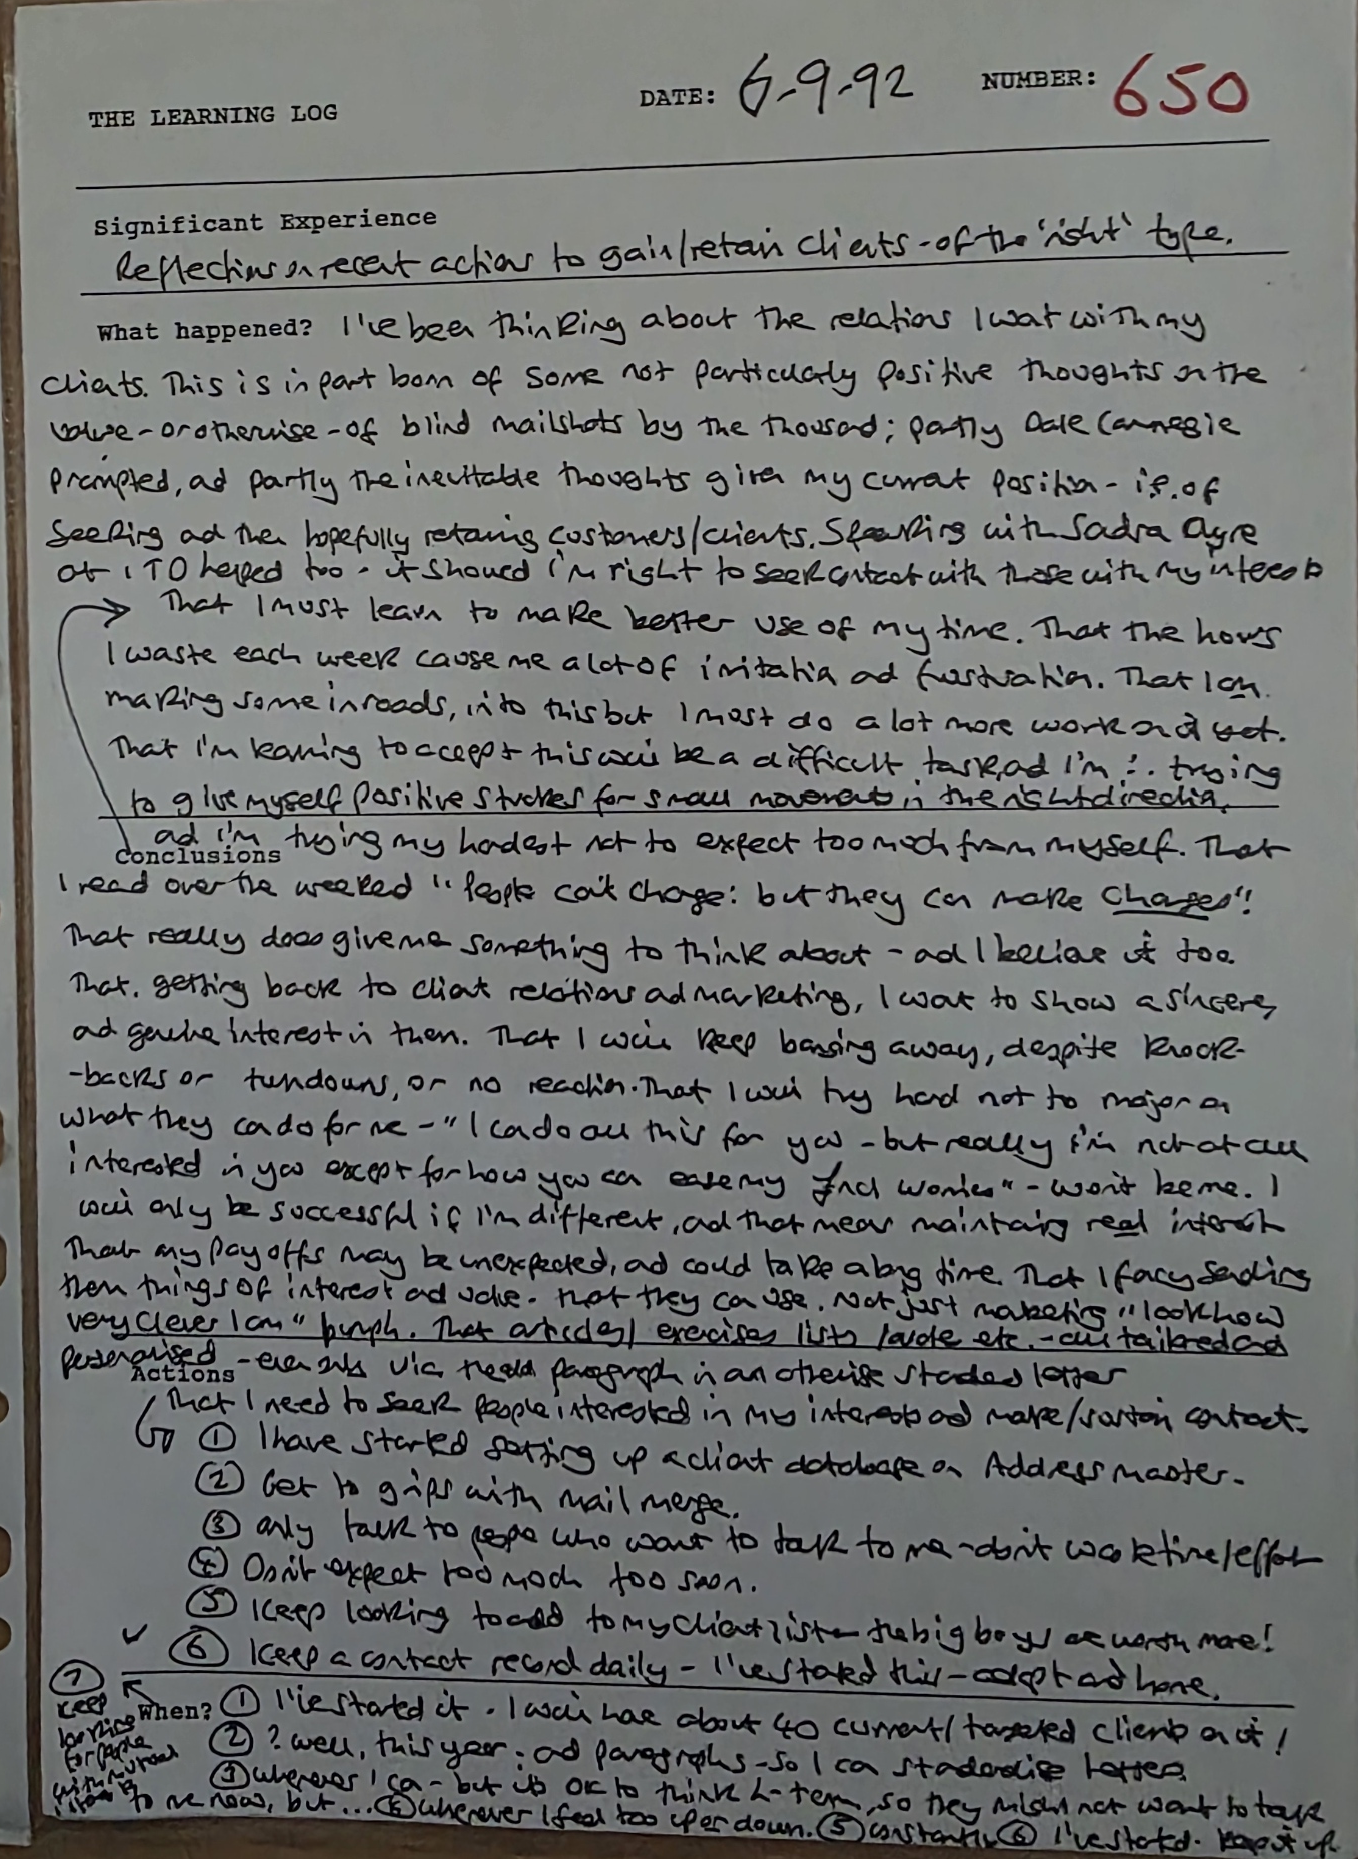 THE LEARNING LOG
DATE: 6-9-92
NUMBER: 650
Significant Experience
Reflections on recent actions to gain/retain clients - of the 'right' type.
What happened? I've been thinking about the relations I want with my
clients. This is in part born of some not particularly positive thoughts on the
value - or otherwise - of blind mailshots by the thousand; partly Dale Carnegie
prompted, and partly the inevitable thoughts given my current position - i.e. of
seeking and then hopefully retaining customers/clients. Speaking with Sandra Ayre
at ITD helped too - it showed I'm right to seek contact with those with my interests
That I must learn to make better use of my time. That the hours
I waste each week cause me a lot of irritation and frustration. That I am
making some inroads, into this but I must do a lot more work on it yet.
That I'm learning to accept this will be a difficult task, and I'm ∴ trying
to give myself positive strokes for small movements in the right direction,
and I'm trying my hardest not to expect too much from myself. That
Conclusions
I read over the weekend "People can't change: but they can make changes"!
That really does give me something to think about - and I believe it too.
That, getting back to client relations and marketing, I want to show a sincere,
and genuine interest in them. That I will keep banging away, despite knock-
-backs or turndowns, or no reaction. That I will try hard not to major on
what they can do for me - "I can do all this for you - but really I'm not at all
interested in you except for how you can ease my fncl worries" - won't be me. I
will only be successful if I'm different, and that means maintaining real interest
That my pay offs may be unexpected, and could take a long time. That I fancy sending
them things of interest and value - that they can use. Not just marketing "look how
very clever I am" bumph. That articles/ exercises lists / etc. - all tailored and
personalised - even only via paragraph in an otherwise standard letter
Actions
That I need to seek people interested in my interests and make/sustain contact.
① I have started setting up a client database on Address master.
② Get to grips with mail merge.
③ only talk to people who want to talk to me - don't waste time/effort
④ Don't expect too much too soon.
⑤ Keep looking to add to my client list - the big boys are worth more!
✓ ⑥ Keep a contact record daily - I've started this - adapt and hone.
⑦ Keep looking for people with mutual
When? ① I've started it. I will have about 40 current/targeted clients on it!
② ? well, this year. and paragraphs - so I can standardise letters
③ whenever I can - but its OK to think L-term, so they might not want to talk
to me now, but... ④ wherever I feel too up or down. ⑤ constantly ⑥ I've started. Keep it up